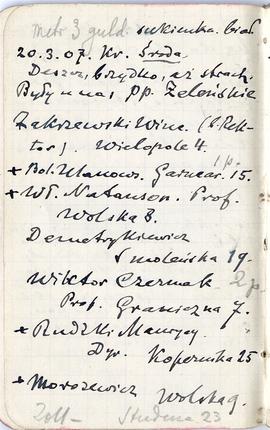 metr 3 guld. sukienka biał
20.3.07. Kr. Środa
Deszcz, brzydko, aż strach.
Były u nas pp. Zeleńskie
Zakrzewski Winc. (b. Rek-
tor). Wielopole 4.
1 p.
+ Bol. Ulanows. Garncar. 15.
+ Wł. Natanson. Prof.
Wolska 8.
Demetrykiewicz
Smoleńska 19.
Wiktor Czermak 2 p.
Prof. Graniczna 7.
+ Rudzki Maurycy
Dyr. Kopernika 25
+ Morozewicz Wolska 9.
Zoll — Studena 23